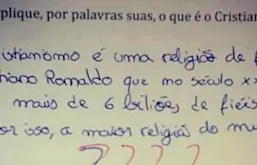 plique, por palavras suas, o que é o Cristian
istianismo é uma religião de f
tiano Romaldo que mo século xx
mais de 6 biliões de fiéis
or isso, a maior religião do mu
? ? ? ?